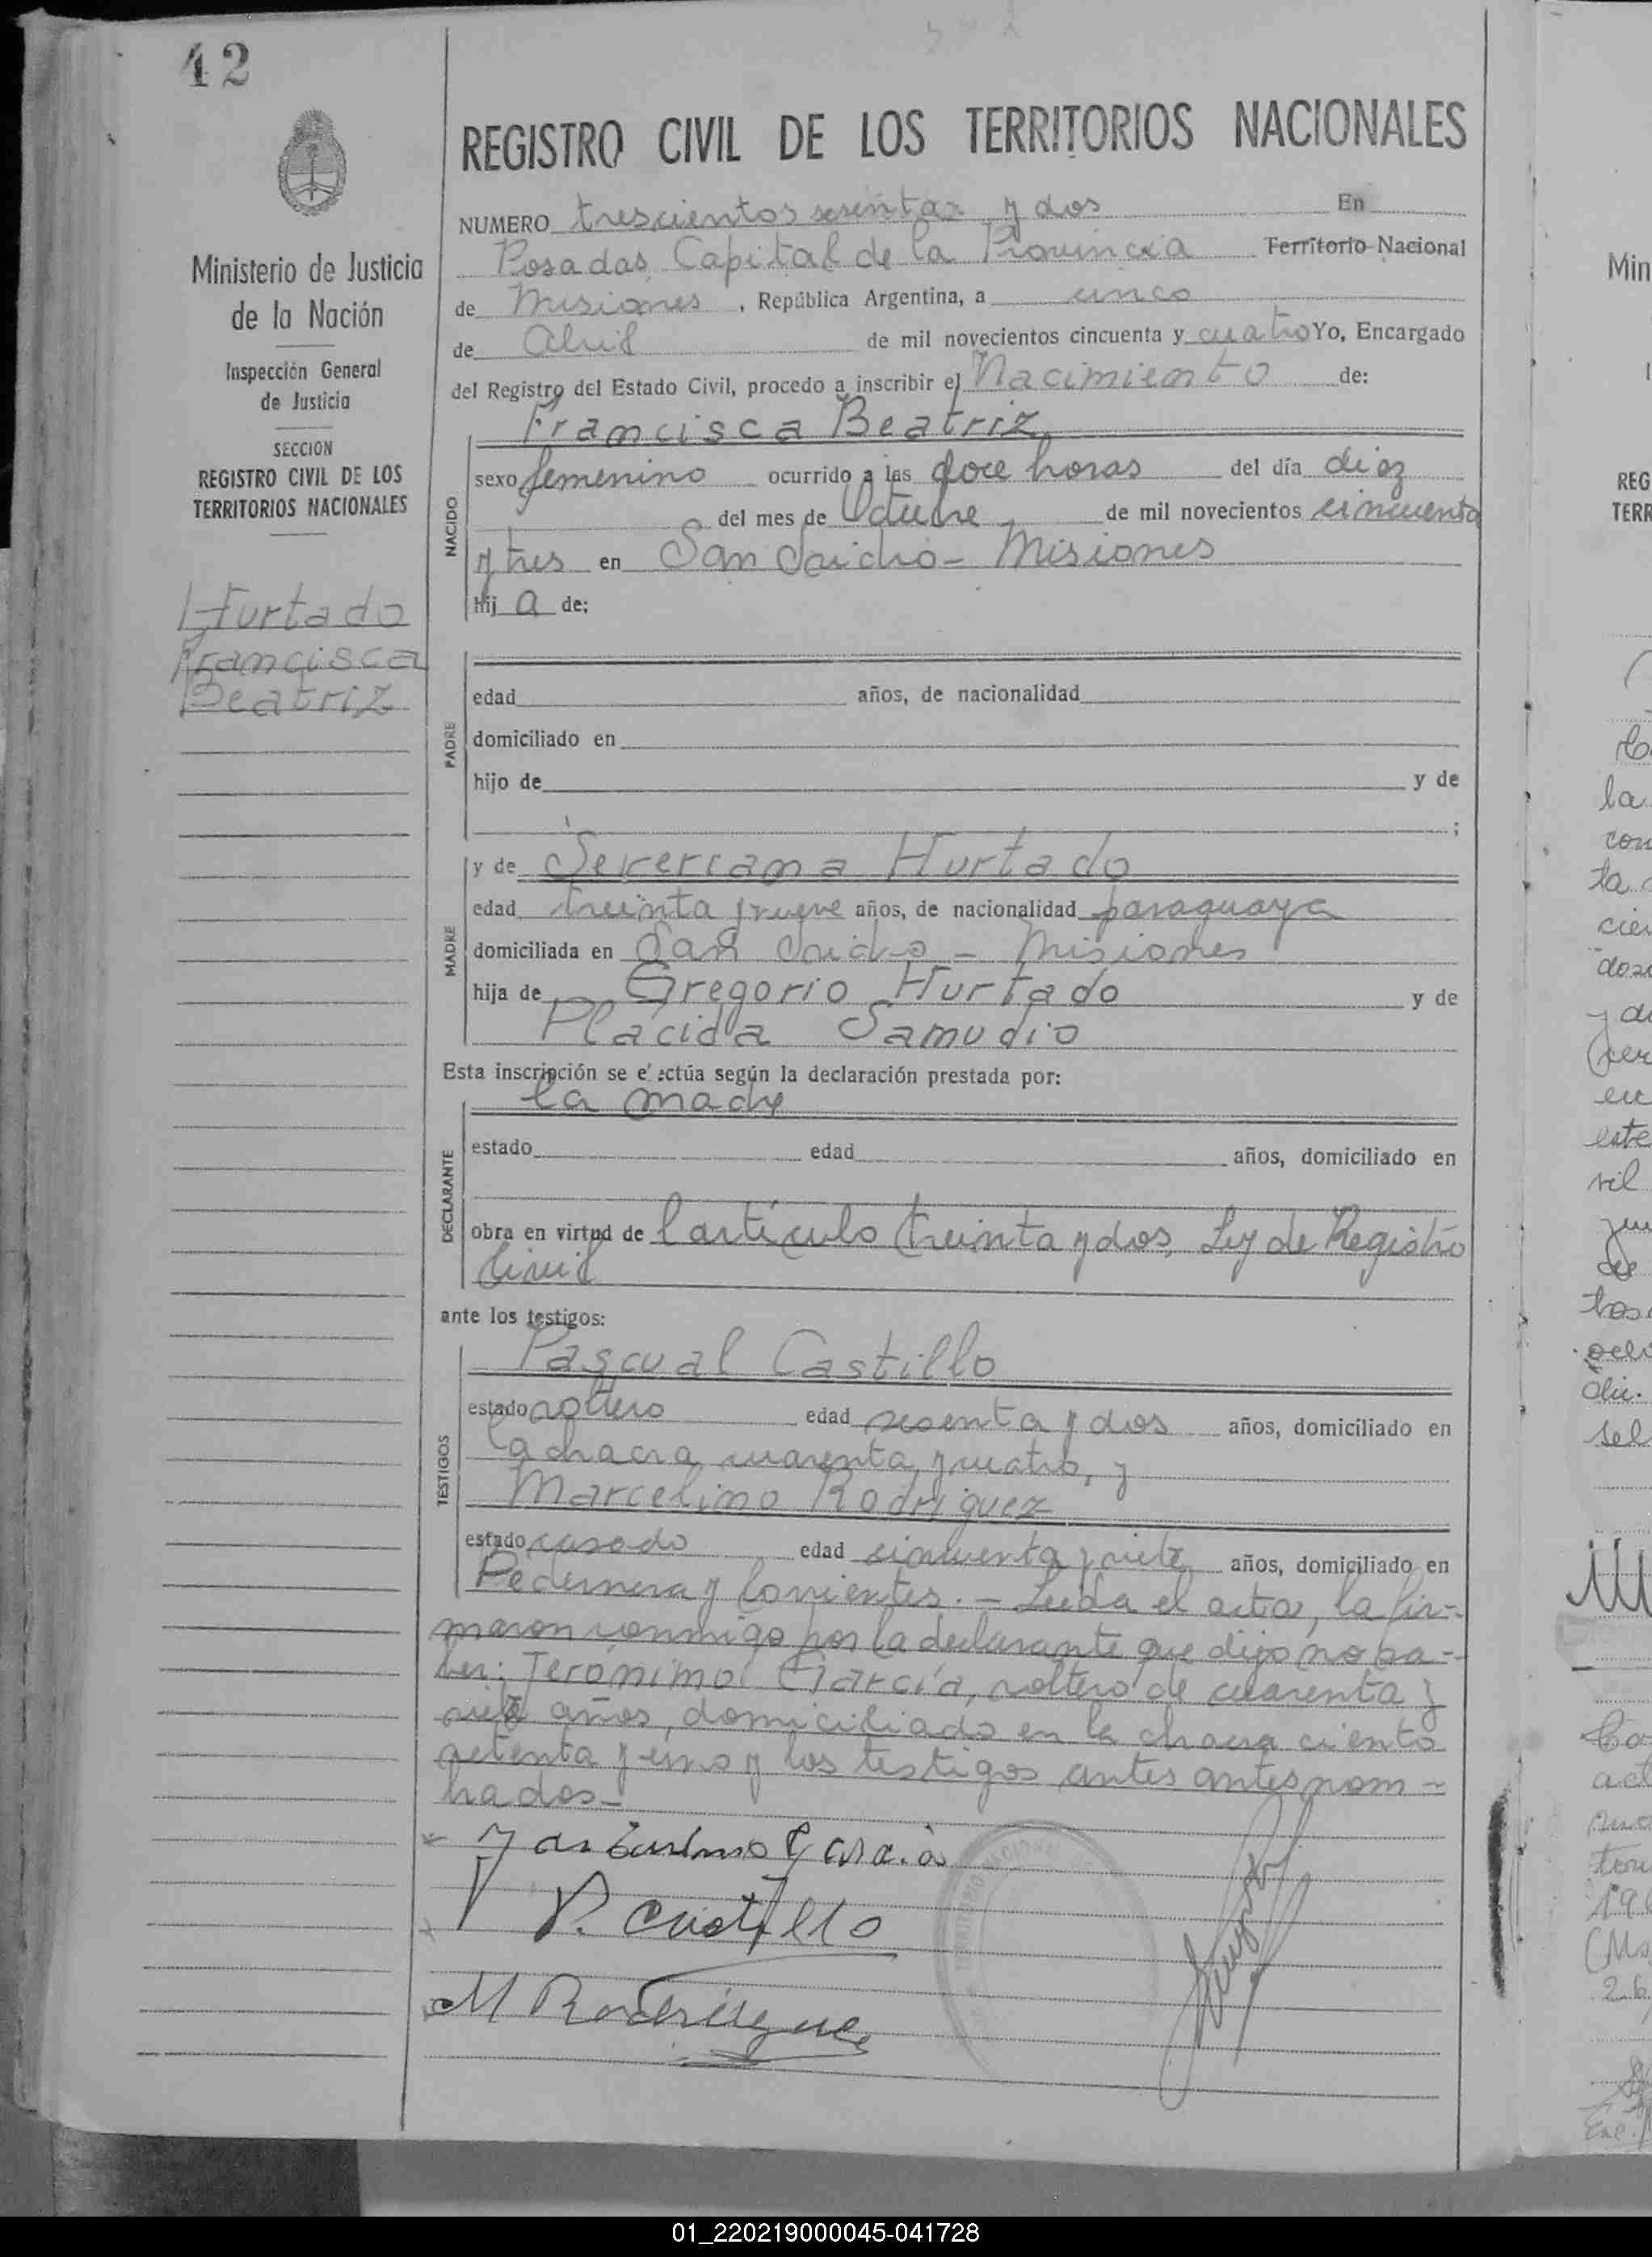 42
REGISTRO CIVIL DE LOS TERRITORIOS NACIONALES
Ministerio de Justicia
de la Nación
Inspección General
de Justicia
SECCION
REGISTRO CIVIL DE LOS
TERRITORIOS NACIONALES
Hurtado
Francisca
Beatriz
NUMERO trescientos sesenta y dos En
Posadas, Capital de la Provincia Territorio Nacional
de Misiones, República Argentina, a cinco
de Abril de mil novecientos cincuenta y cuatro Yo, Encargado
del Registro del Estado Civil, procedo a inscribir el Nacimiento de:
NACIDO
Francisca Beatriz
sexo femenino ocurrido a las doce horas del día diez
del mes de Octubre de mil novecientos cincuenta
y tres en San Isidro - Misiones
hij a de:
PADRE
edad años, de nacionalidad
domiciliado en
hijo de y de
;
MADRE
y de Severiana Hurtado
edad treinta y nueve años, de nacionalidad paraguaya
domiciliada en San Isidro - Misiones
hija de Gregorio Hurtado y de
Plácida Samudio
Esta inscripción se efectúa según la declaración prestada por:
DECLARANTE
la madre
estado edad años, domiciliado en
obra en virtud de l artículo treinta y dos, Ley de Registro
Civil
ante los testigos:
TESTIGOS
Pascual Castillo
estado soltero edad sesenta y dos años, domiciliado en
la chacra cuarenta y cuatro, y
Marcelino Rodríguez
estado casado edad cincuenta y siete años, domiciliado en
Pedernera y Corrientes. - Leída el acta, la fir-
maron conmigo por la declarante que dijo no sa-
ber: Jerónimo García, soltero de cuarenta y
siete años, domiciliado en la chacra ciento
setenta y uno y los testigos antes antes nom-
brados -
García
P. Castillo
M Rodrígue
01_220219000045-041728